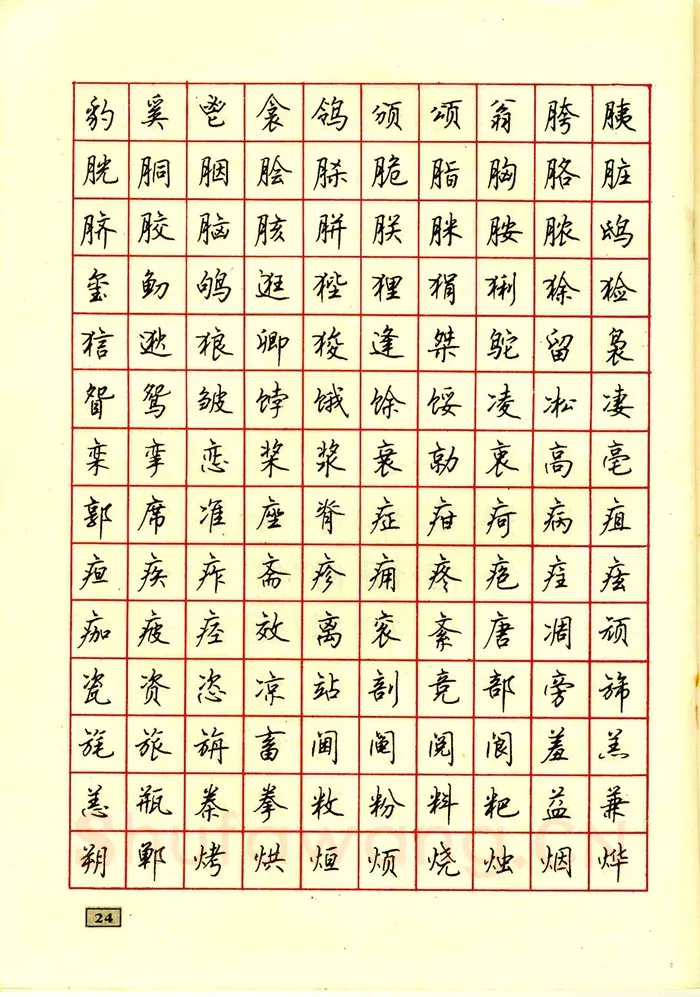 豹奚鬯衾鸰颁颂翁胯胰
胱胴胭脍脎脆脂胸胳脏
脐胶脑胲胼朕脒胺脓鸱
玺鱽鸲逛狴狸狷猁狳猃
狺逖狼卿狻逢桀鸵留袅
眢鸳皱饽饿馀馁凌凇凄
栾挛恋桨浆衰勍衷高亳
郭席准座脊症疳疴病疽
疸疾痄斋疹痈疼疱疰痃
痂疲痉效离衮紊唐凋颃
瓷资恣凉站剖竞部旁旆
旄旅旃畜阃阄阅阆羞羔
恙瓶桊拳敉粉料粑益兼
朔郸烤烘烜烦烧烛烟烨
Shufawang.cn
24